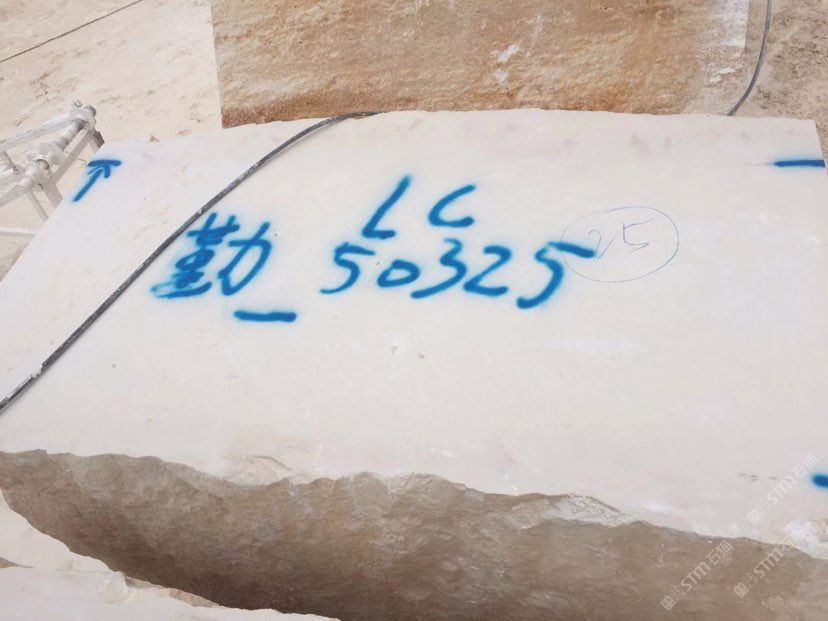 LC
勤_50325
25
STM石猫
STM石猫